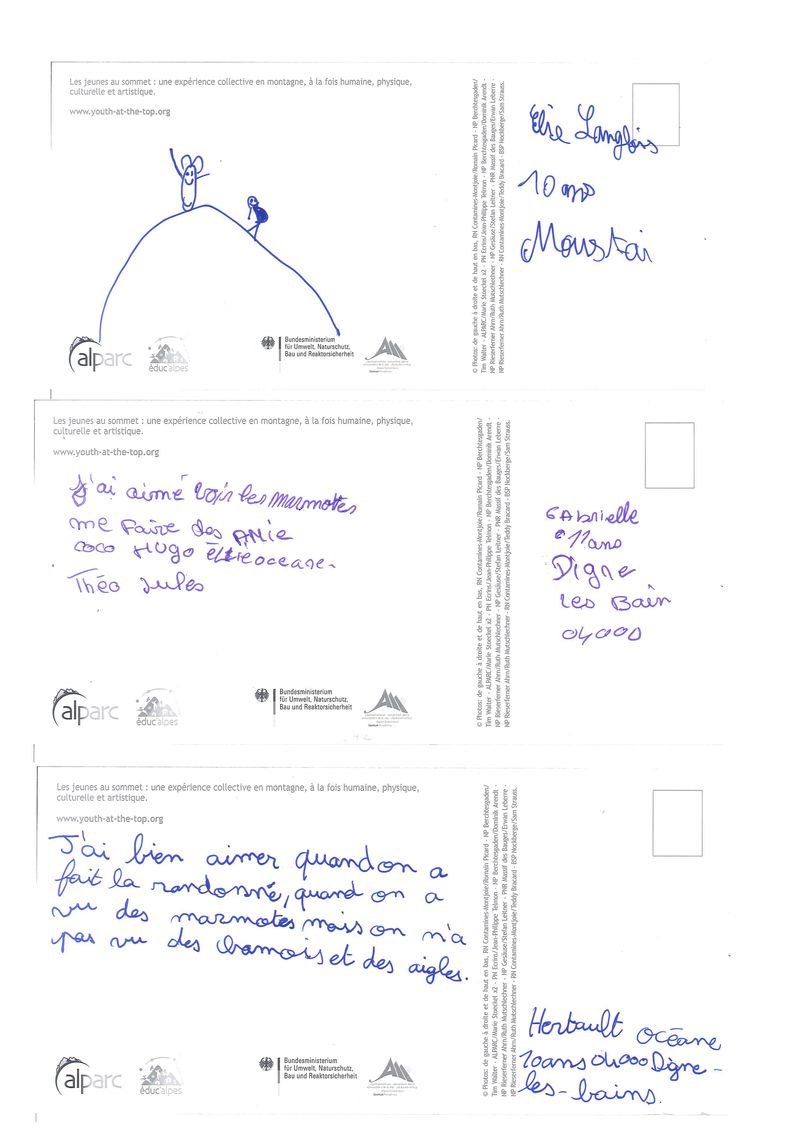 Les jeunes au sommet : une expérience collective en montagne, à la fois humaine, physique,
culturelle et artistique.
www.youth-at-the-top.org
alparc
éducalpes
Bundesministerium
für Umwelt, Naturschutz,
Bau und Reaktorsicherheit
© Photos: de gauche à droite et de haut en bas, RN Contamines-Montjoie/Romain Picard - NP Berchtesgaden/
Tim Walter - ALPARC/Marie Stoeckel x2 - PN Ecrins/Jean-Philippe Telmon - NP Berchtesgaden/Dominik Arendt -
NP Rieserferner Ahrn/Ruth Mutschlechner - NP Gesäuse/Stefan Leitner - PNR Massif des Bauges/Erwan Leberre -
NP Rieserferner Ahrn/Ruth Mutschlechner - RN Contamines-Montjoie/Teddy Bracard - BSP Hockberge/Sam Strauss.
Elie Langlois
10 ans
Moustai
Les jeunes au sommet : une expérience collective en montagne, à la fois humaine, physique,
culturelle et artistique.
www.youth-at-the-top.org
J'ai aimé voir les marmottes
me faire des AMie
coco HUGO Elie oceane.
Théo Jules
alparc
éducalpes
Bundesministerium
für Umwelt, Naturschutz,
Bau und Reaktorsicherheit
© Photos: de gauche à droite et de haut en bas, RN Contamines-Montjoie/Romain Picard - NP Berchtesgaden/
Tim Walter - ALPARC/Marie Stoeckel x2 - PN Ecrins/Jean-Philippe Telmon - NP Berchtesgaden/Dominik Arendt -
NP Rieserferner Ahrn/Ruth Mutschlechner - NP Gesäuse/Stefan Leitner - PNR Massif des Bauges/Erwan Leberre -
NP Rieserferner Ahrn/Ruth Mutschlechner - RN Contamines-Montjoie/Teddy Bracard - BSP Hockberge/Sam Strauss.
GAbrielle
11ans
Digne
les Bain
04000
Les jeunes au sommet : une expérience collective en montagne, à la fois humaine, physique,
culturelle et artistique.
www.youth-at-the-top.org
J'ai bien aimer quand on a
fait la randonné, quand on a
vu des marmotes mais on n'a
pas vu des chamois et des aigles.
alparc
éducalpes
Bundesministerium
für Umwelt, Naturschutz,
Bau und Reaktorsicherheit
© Photos: de gauche à droite et de haut en bas, RN Contamines-Montjoie/Romain Picard - NP Berchtesgaden/
Tim Walter - ALPARC/Marie Stoeckel x2 - PN Ecrins/Jean-Philippe Telmon - NP Berchtesgaden/Dominik Arendt -
NP Rieserferner Ahrn/Ruth Mutschlechner - NP Gesäuse/Stefan Leitner - PNR Massif des Bauges/Erwan Leberre -
NP Rieserferner Ahrn/Ruth Mutschlechner - RN Contamines-Montjoie/Teddy Bracard - BSP Hockberge/Sam Strauss.
Herbault Océane
10ans 04000 Digne-
les-bains.